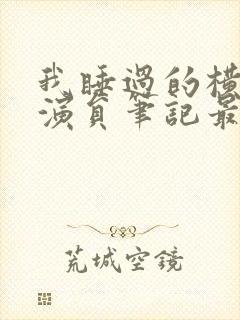 我睡過的橫
演員筆記最
荒城空鏡